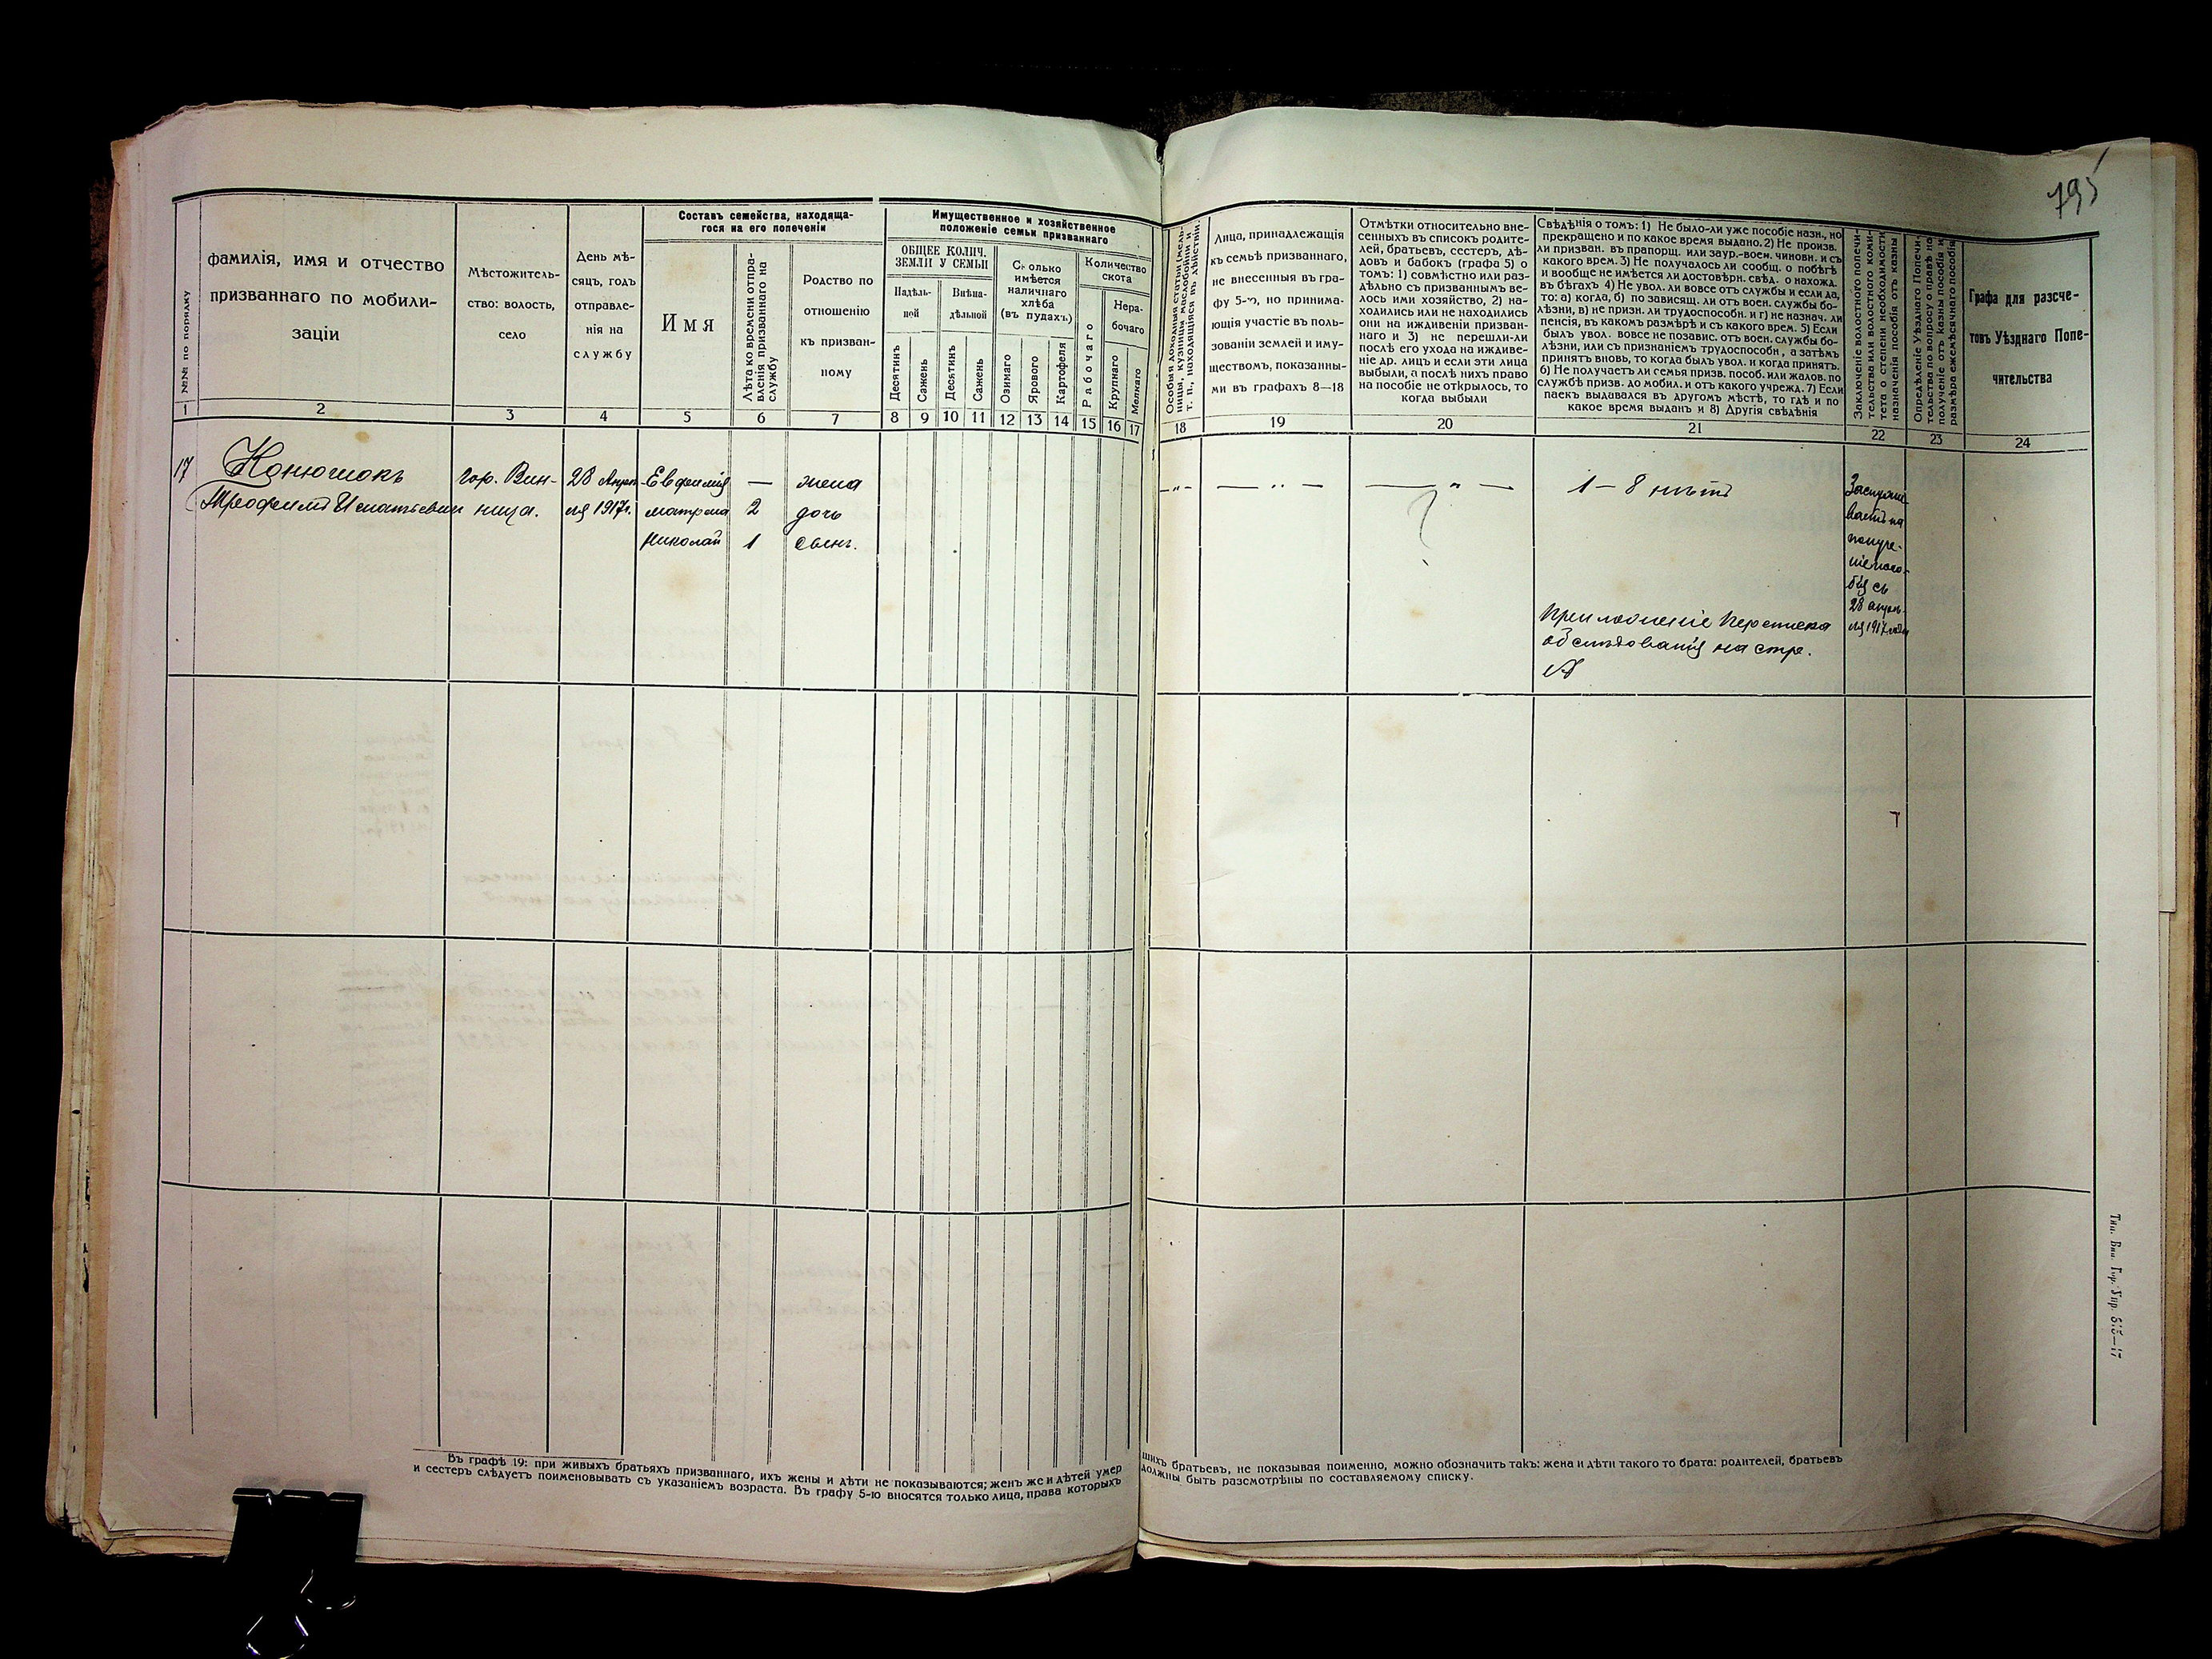 795
№№ по порядку
фамилія, имя и отчество
призваннаго по мобили-
заціи
Мѣстожитель-
ство: волость,
село
День мѣ-
сяцъ, годъ
отправле-
нія на
службу
Составъ семейства, находяща-
гося на его попеченіи
Имя
Лѣта ко времени отпра-
вленія призваннаго на
службу
Родство по
отношенію
къ призван-
ному
Имущественное и хозяйственное
положеніе семьи призваннаго
ОБЩЕЕ КОЛИЧ.
ЗЕМЛИ У СЕМЬИ
Надѣль-
ной
Внѣна-
дѣльной
Десятинъ
Сажень
Десятинъ
Сажень
Сколько
имѣется
наличнаго
хлѣба
(въ пудахъ)
Озимаго
Ярового
Картофеля
Количество
скота
Рабочаго
Нера-
бочаго
Крупнаго
Мелкаго
Особыя доходныя статьи (мель-
ницы, кузницы, маслобойни и
т. п., находящіяся въ дѣйствіи).
Лица, принадлежащія
къ семьѣ призваннаго,
не внесенныя въ гра-
фу 5-ю, но принима-
ющія участіе въ поль-
зованіи землей и иму-
ществомъ, показанны-
ми въ графахъ 8—18
Отмѣтки относительно вне-
сенныхъ въ списокъ родите-
лей, братьевъ, сестеръ, дѣ-
довъ и бабокъ (графа 5) о
томъ: 1) совмѣстно или раз-
дѣльно съ призваннымъ ве-
лось ими хозяйство, 2) на-
ходились или не находились
они на иждивеніи призван-
наго и 3) не перешли-ли
послѣ его ухода на иждиве-
ніе др. лицъ и если эти лица
выбыли, а послѣ нихъ право
на пособіе не открылось, то
когда выбыли
Свѣдѣнія о томъ: 1) Не было-ли уже пособіе назн., но
прекращено и по какое время выдано. 2) Не произв.
ли призван. въ прапорщ. или заур.-воен. чиновн. и съ
какого врем. 3) Не получалось ли сообщ. о побѣгѣ
и вообще не имѣется ли достовѣрн. свѣд. о нахожд.
въ бѣгахъ 4) Не увол. ли вовсе отъ службы и если да,
то: а) когда, б) по зависящ. ли отъ воен. службы бо-
лѣзни, в) не призн. ли трудоспособн. и г) не назнач. ли
пенсія, въ какомъ размѣрѣ и съ какого врем. 5) Если
былъ увол. вовсе не позавис. отъ воен. службы бо-
лѣзни, или съ признаніемъ трудоспособн., а затѣмъ
принятъ вновь, то когда былъ увол. и когда принятъ.
6) Не получаетъ ли семья призв. пособ. или жалов. по
службѣ призв. до мобил. и отъ какого учрежд. 7) Если
паекъ выдавался въ другомъ мѣстѣ, то гдѣ и по
какое время выданъ и 8) Другія свѣдѣнія
Заключеніе волостного попечи-
тельства или волостного коми-
тета о степени необходимости
назначенія пособія отъ казны
Опредѣленіе Уѣзднаго Попечи-
тельства по вопросу о правѣ на
полученіе отъ казны пособія и
размѣра ежемѣсячнаго пособія
Графа для разсче-
товъ Уѣзднаго Попе-
чительства
1 2 3 4 5 6 7 8 9 10 11 12 13 14 15 16 17 18 19 20 21 22 23 24
17 Конюшокъ гор. Вин- 28 Апрѣ- Евфимія — жена — „ — — „ — — „ — 1 – 8 нѣтъ
Трофимъ Игнатьевич ница. ля 1917 г. Матрона 2 дочь
Николай 1 сынъ.
Заслужи
ваетъ на
получе-
ніе посо-
бія съ
28 апрѣ-
ля 1917 года
Приложеніе Переписка
обслѣдованія на стр.
№
Въ графѣ 19: при живыхъ братьяхъ призваннаго, ихъ жены и дѣти не показываются; женъ же и дѣтей умер
шихъ братьевъ, не показывая поименно, можно обозначить такъ: жена и дѣти такого то брата: родителей, братьевъ
и сестеръ слѣдуетъ поименовывать съ указаніемъ возраста. Въ графу 5-ю вносятся только лица, права которыхъ
должны быть разсмотрѣны по составляемому списку.
Тип. Вин. Гор. Упр.